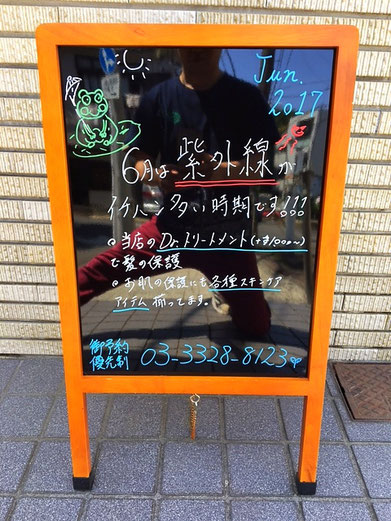 Jun.
2017
6月は紫外線が
イチバン多い時期です!!!
当店のDr.トリートメント(+¥1000〜)
で髪の保護
お肌の保護にも各種スキンケア
アイテム揃ってます。
御予約
優先制
03-3328-8123